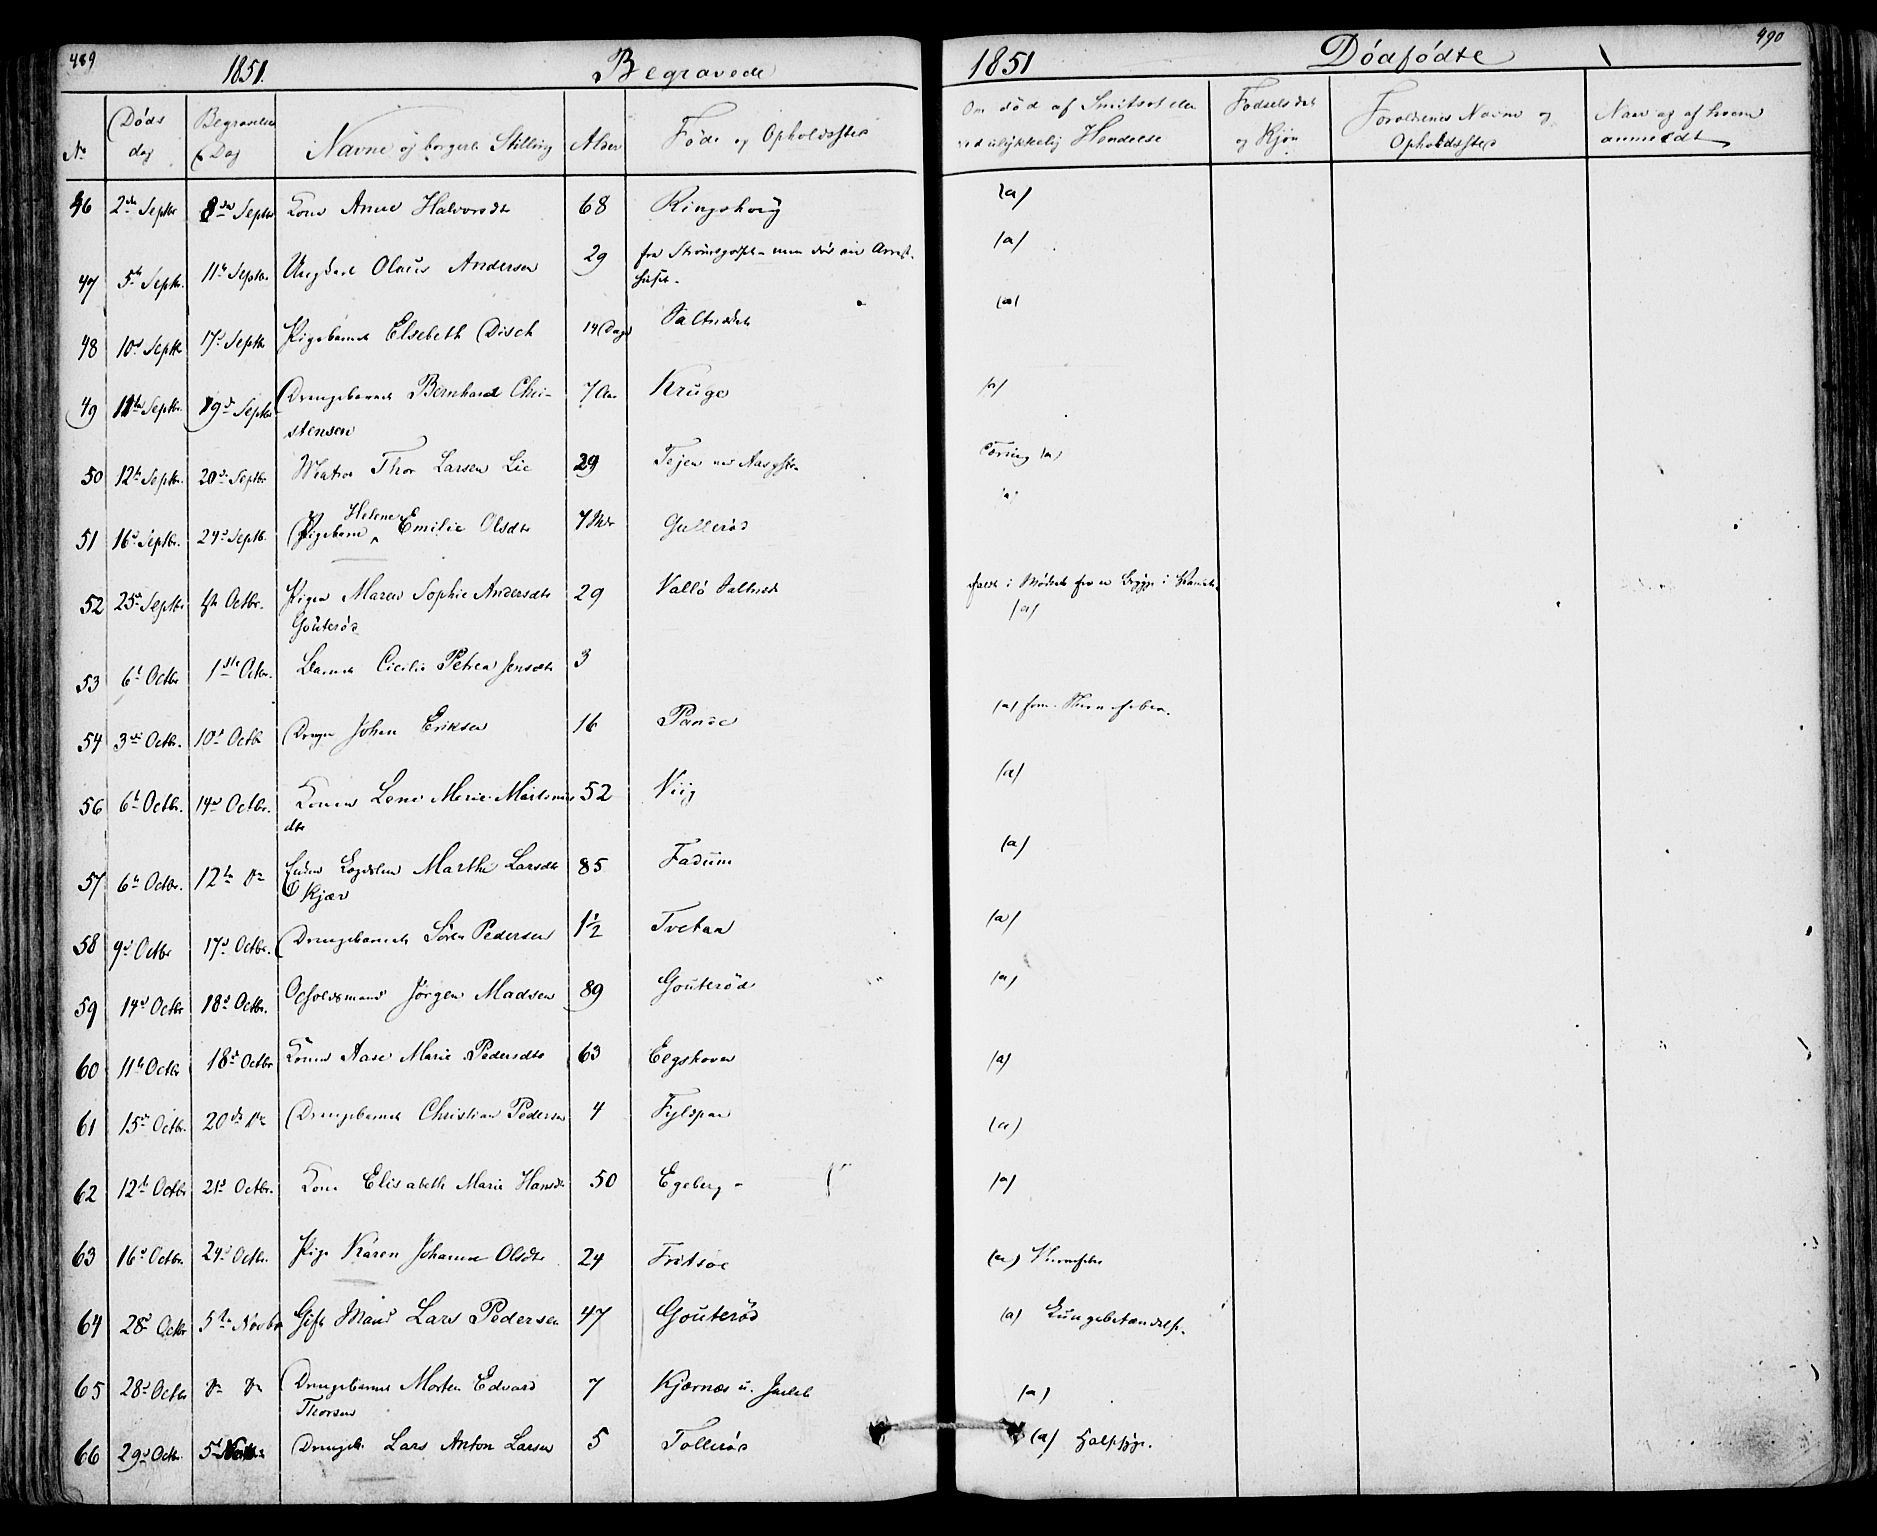 489
1851.
Begravede
No
Døds dag
Begravelses Dag
Navne og borgerl. Stilling
Alder
Føde og Opholdssted
46 2den Septbr 8de Septbr Kone Anne Halvorsdtr 68 Ringshoug
47 5te Septbr. 11te Septbr. Ungkarl Olaus Andersen 29 fra
48 10de Septbr 17de Septbr Pigebarnet Elsebeth Disch 14 Dage Saltværket
49 11te Septbr. 19de Septbr Drengebarnet Bernhard Chri-
stensen 7 Aar Kruge
50 12te Septbr. 20de Septbr Matros Thor Larsen Lie 29
51 16de Septbr. 24de Septbr. Pigebarn Helene Emilie Olsdtr 7 Mdr Gullerød
52 25de Septbr 4de Octbr. Pigen Maren Sophie Andersdtr 29 Vallö Saltværk
Gouterød
53 6te Octbr 1ste Octbr. Barnet Cicilie Petrea Jensdtr 3
54 3de Octbr. 10de Octbr Dreng Johan Eriksen 16
56 6te Octbr. 14de Octbr. Konen Lene Marie Martinus
dtr 52 Viig
57 6te Octbr. 12te do Enken Marthe Larsdtr 85 Fadum
Kjær
58 9de Octbr 17de Octbr. Drengebarnet Sören Pedersen 1½ Tvetaa
59 14de Octbr 18de Octbr. Opholdsmand Jörgen Madsen 89 Gouterød
60 11te Octbr 18de Octbr Konen Aase Marie Pedersdtr 63 Eegskoven
61 15de Octbr. 20de do Drengebarnet Christian Pedersen 4 Fyldpaa
62 12te Octbr 21de Octbr. Kone Elisabeth Marie Hansdtr 50 Egeberg
63 16de Octbr. 24de Octbr. Pige Karen Johanne Olsdtr 24 Fritsøe
64 28de Octbr 5te Novbr Gift Mand Lars Pedersen 47 Gouterød
65 28de Octbr do do Drengebarnet Morten Edvard
Thorsen 7 Kjærnæs u. Jarlsb
66 29de Octbr. 5te Drengeb. Lars Anton Larsen 5 Tollerød
1851
Dødfødte
490
Om død af Smitsot eller
ved ulykkelig Hændelse
Fødselsdat
og Kjøn
Forældrenes Navne og
Opholdssted
Naar og af hvem
anmeldt
(a)
(a)
(a)
(a)
Tæring (a)
(a)
(a)
(a)
(a)
(a)
(a)
(a)
(a)
(a)
(a)
(a) Nervefeber
(a) Lungebetændelse.
(a)
(a) Halssyge.